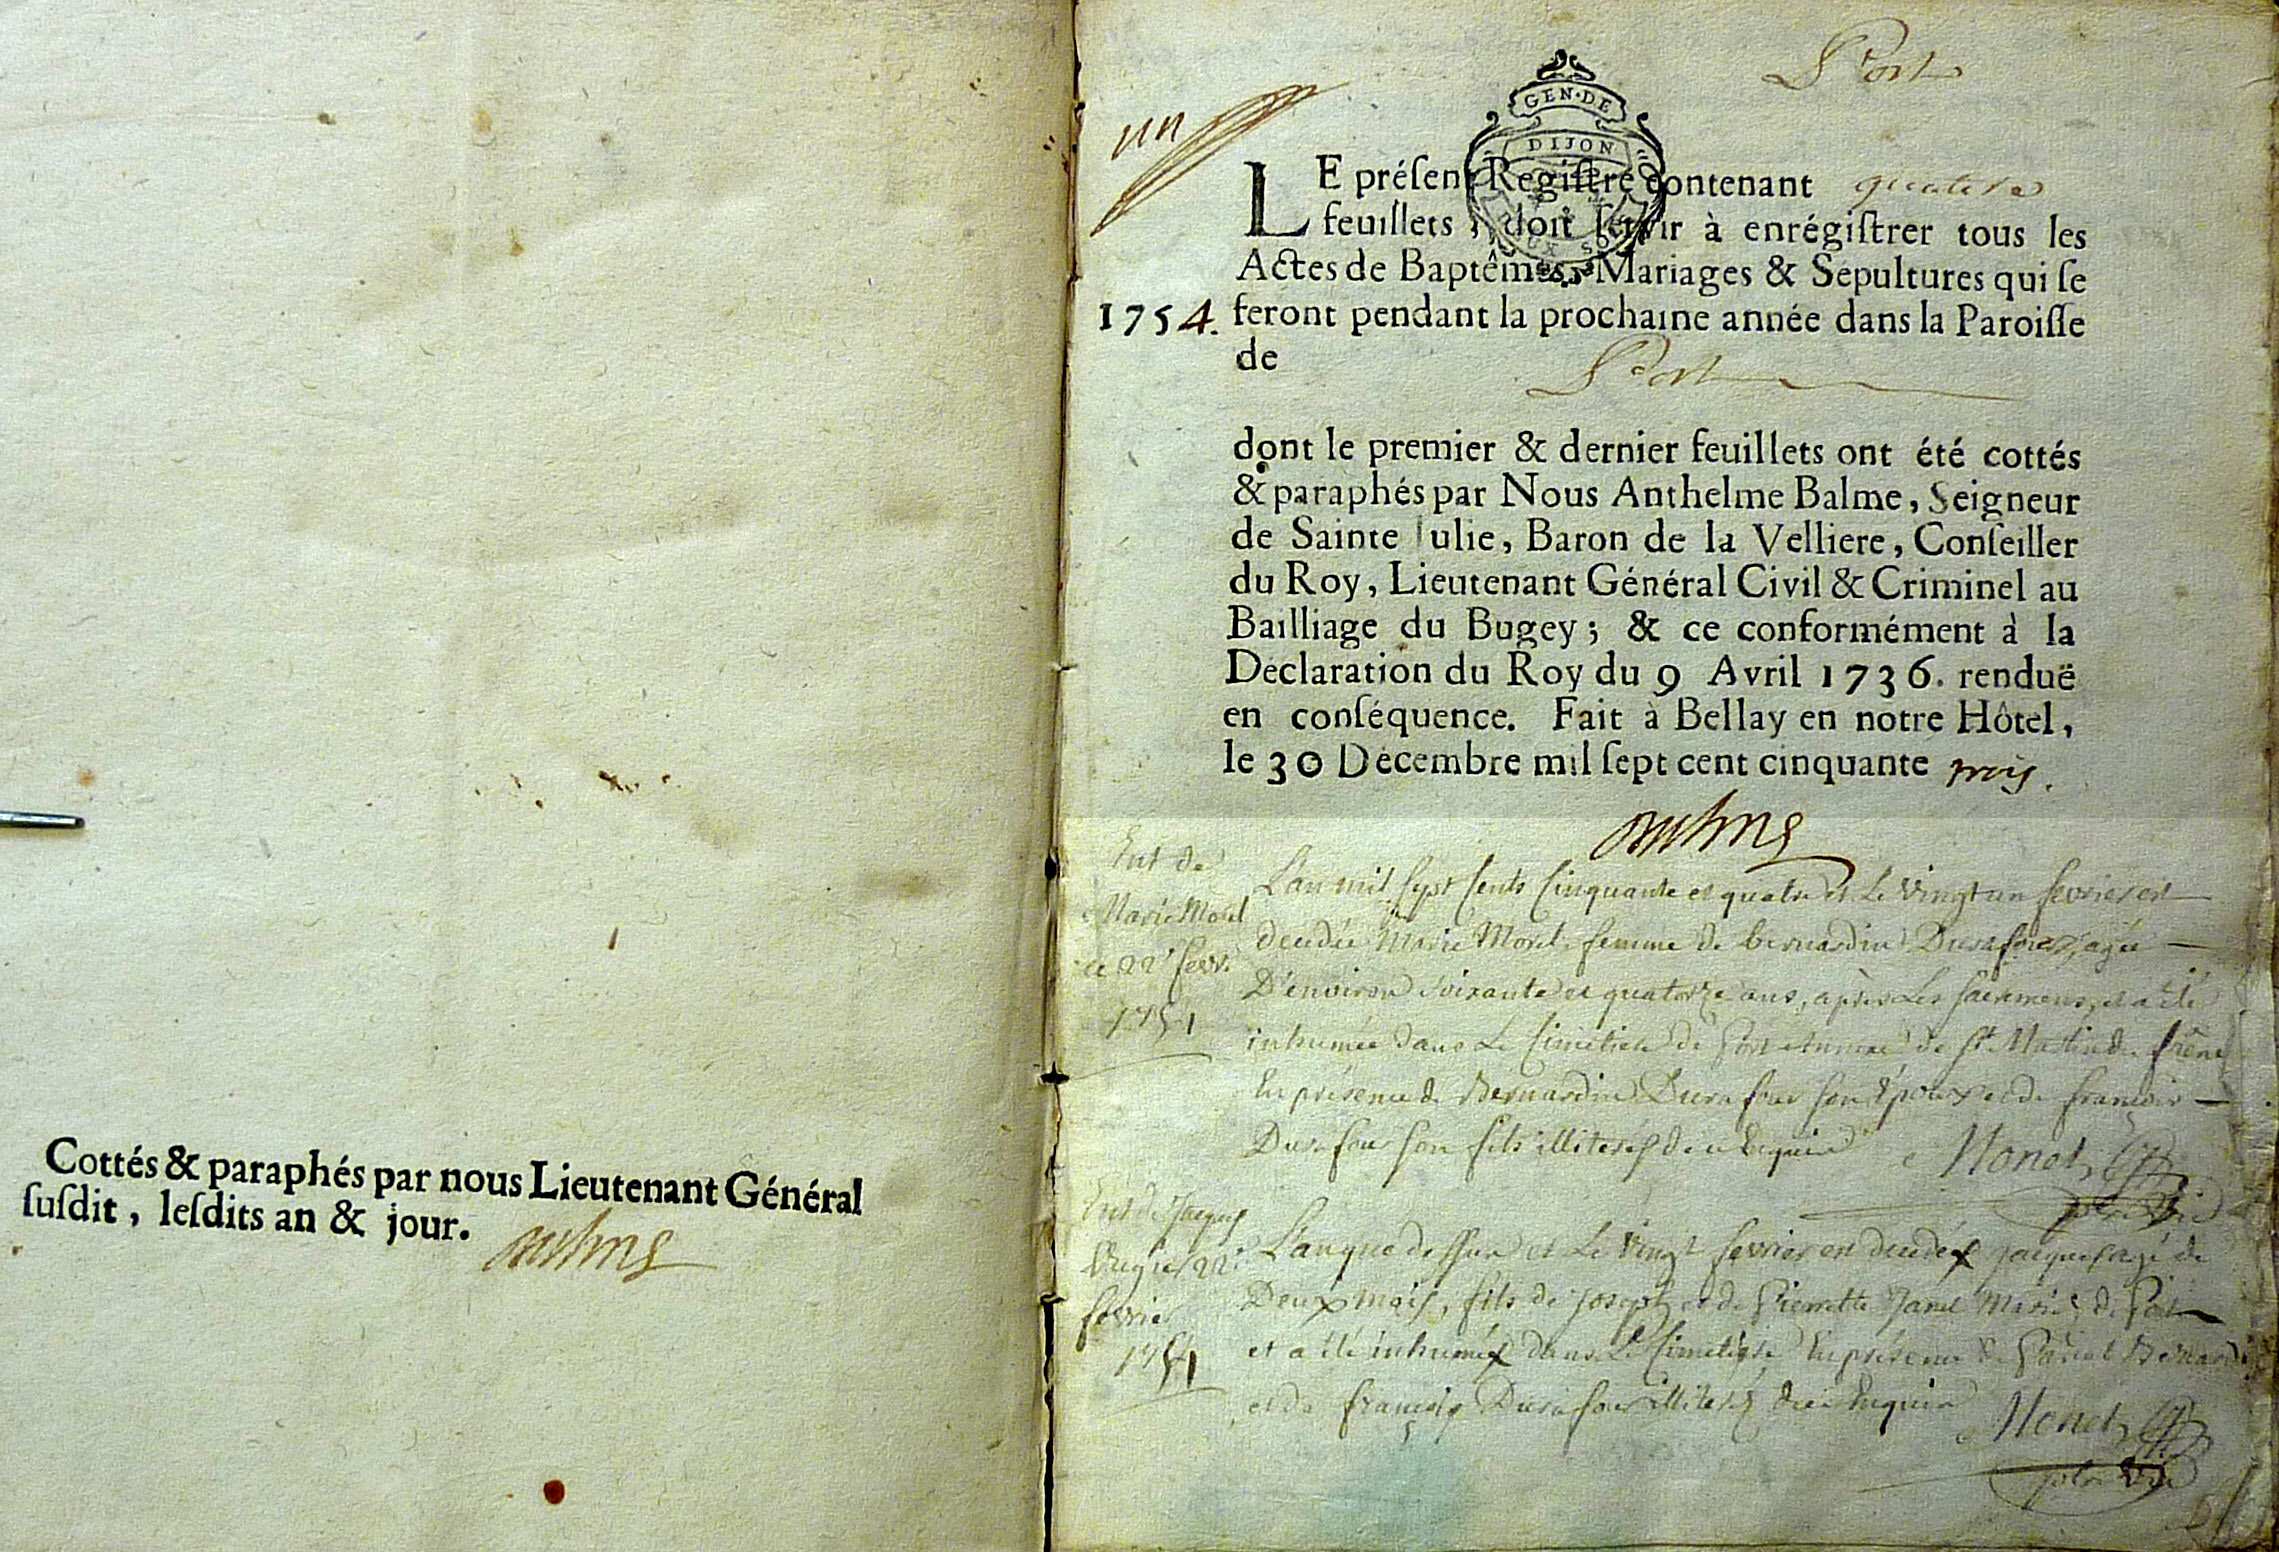 Cottés & paraphés par nous Lieutenant Général
ſuſdit, leſdits an & jour.
Port
un
GEN·DE
DIJON
DEUX SOLS
LE préſent Regiſtre contenant quatre
feuillets, doit ſervir à enrégiſtrer tous les
Actes de Baptêmes, Mariages & Sepultures qui ſe
1754. feront pendant la prochaine année dans la Paroiſſe
de Port
dont le premier & dernier feuillets ont été cottés
& paraphés par Nous Anthelme Balme, Seigneur
de Sainte Julie, Baron de la Velliere, Conſeiller
du Roy, Lieutenant Général Civil & Criminel au
Bailliage du Bugey; & ce conformément à la
Declaration du Roy du 9 Avril 1736. renduë
en conſéquence. Fait à Bellay en notre Hôtel,
le 30 Décembre mil ſept cent cinquante trois.
Ent de
Marie Morel
ce 22e fevr.
1754
L'an mil sept cents cinquante et quatre et le vingt un fevrier est
decedée Marie Morel femme de bernardin Durafour, agée
D'environ soixante et quatorze ans, après les sacremens, et a été
inhumée dans le Cimetiere de Port annexe de St Martin du frêne
En présence de Bernardin Durafour son Epoux et de francois
Durafour son fils illiterés de ce Enquis
Monet
Ent de Jacques
22e
fevrier
1754
L'an que dessus et le vingt fevrier est decedé jacques agé de
Deux mois, fils de joseph et de Pierrette Mariés de Port
et a été inhumé dans le Cimetiere En présence de
et de françois Durafour illiterés de ce Enquis
Monet